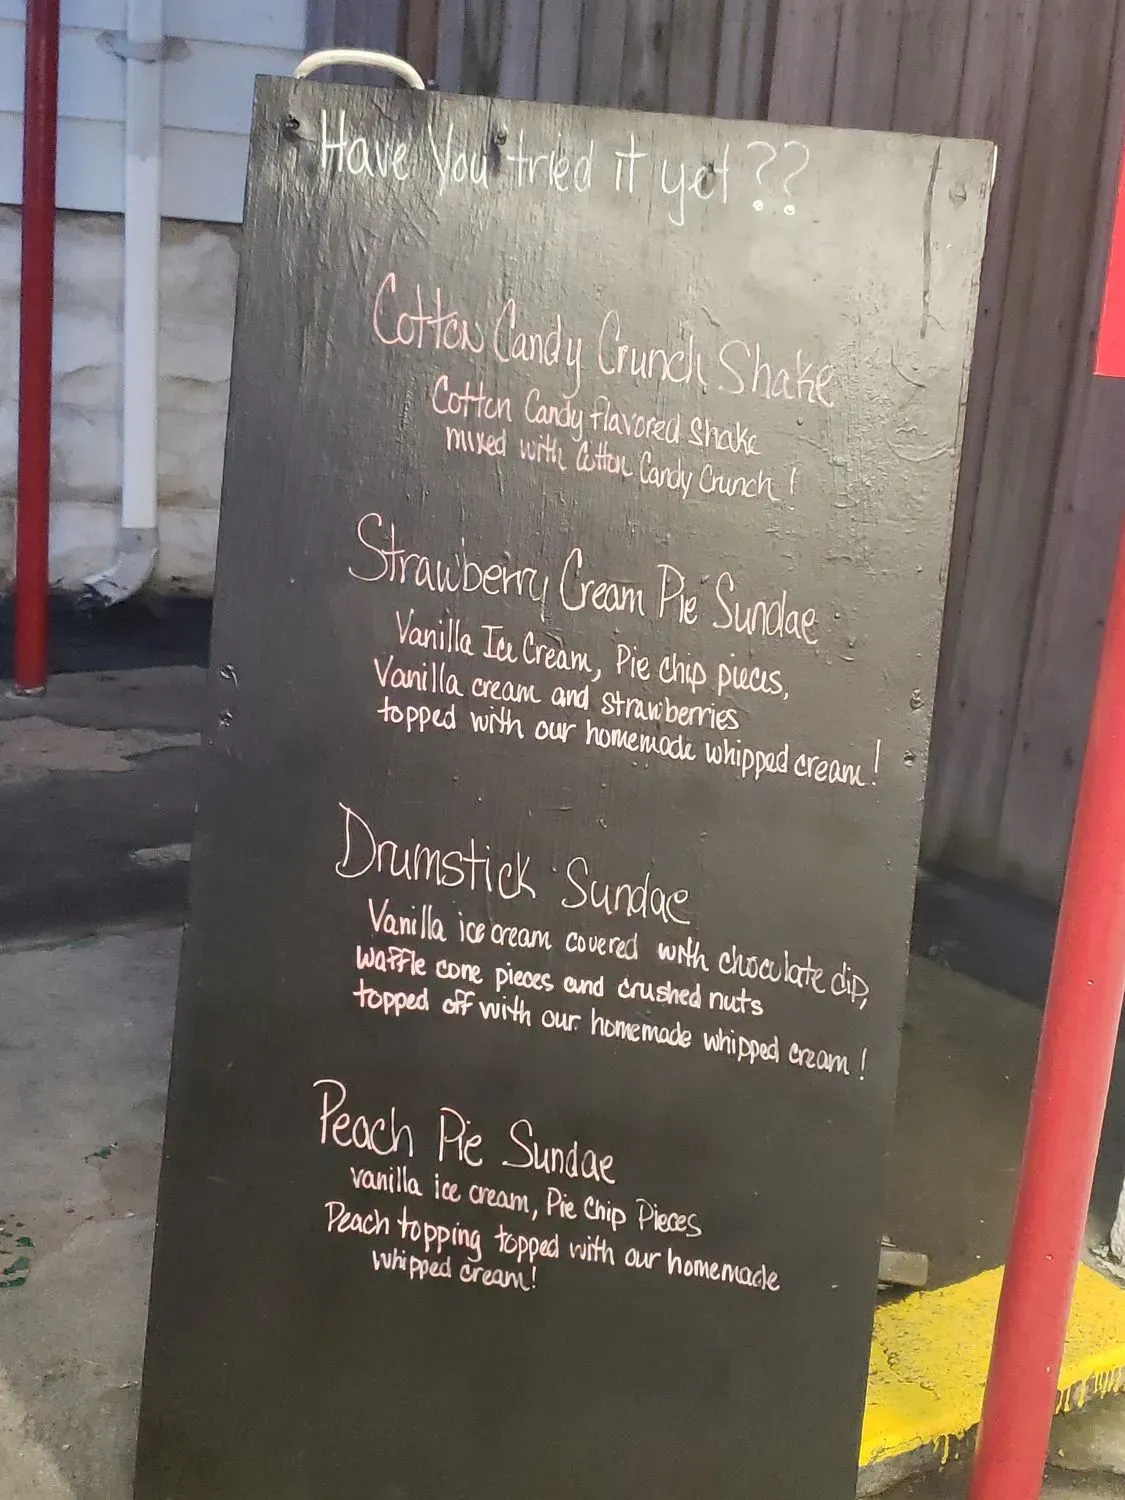 Have You tried it yet??
Cotton Candy Crunch Shake
Cotton Candy flavored Shake
mixed with Cotton Candy Crunch!
Strawberry Cream Pie Sundae
Vanilla Ice Cream, Pie chip pieces,
Vanilla cream and strawberries
topped with our homemade whipped cream!
Drumstick Sundae
Vanilla ice cream covered with chocolate dip,
waffle cone pieces and crushed nuts
topped off with our homemade whipped cream!
Peach Pie Sundae
vanilla ice cream, Pie Chip Pieces
Peach topping topped with our homemade
whipped cream!